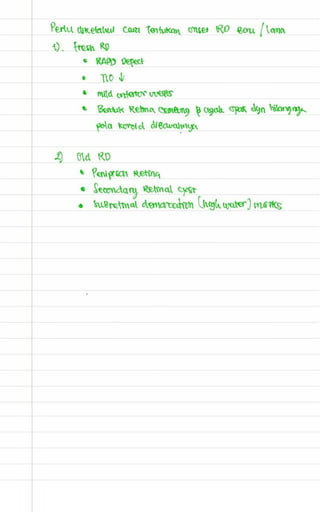 Perlu diketahui cara Tentukan onset RD Baru / lama
1). Fresh RD
• RAPD Defect
• TIO ↓
• mild anterior uveitis
• Bentuk Retina cembung & agak opak dgn hilangnya
pola koroid dibawahnya
2) Old RD
• Penipisan Retina
• Secondary Retinal cyst
• Subretinal demarcation (high water) marks